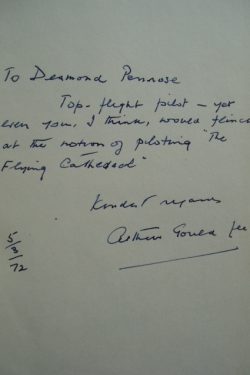 To Desmond Penrose
Top-flight pilot – yet
even you, I think, would flinch
at the notion of piloting "The
Flying Cathedral"
Kindest regards
Arthur Gould Lee
5/3/72